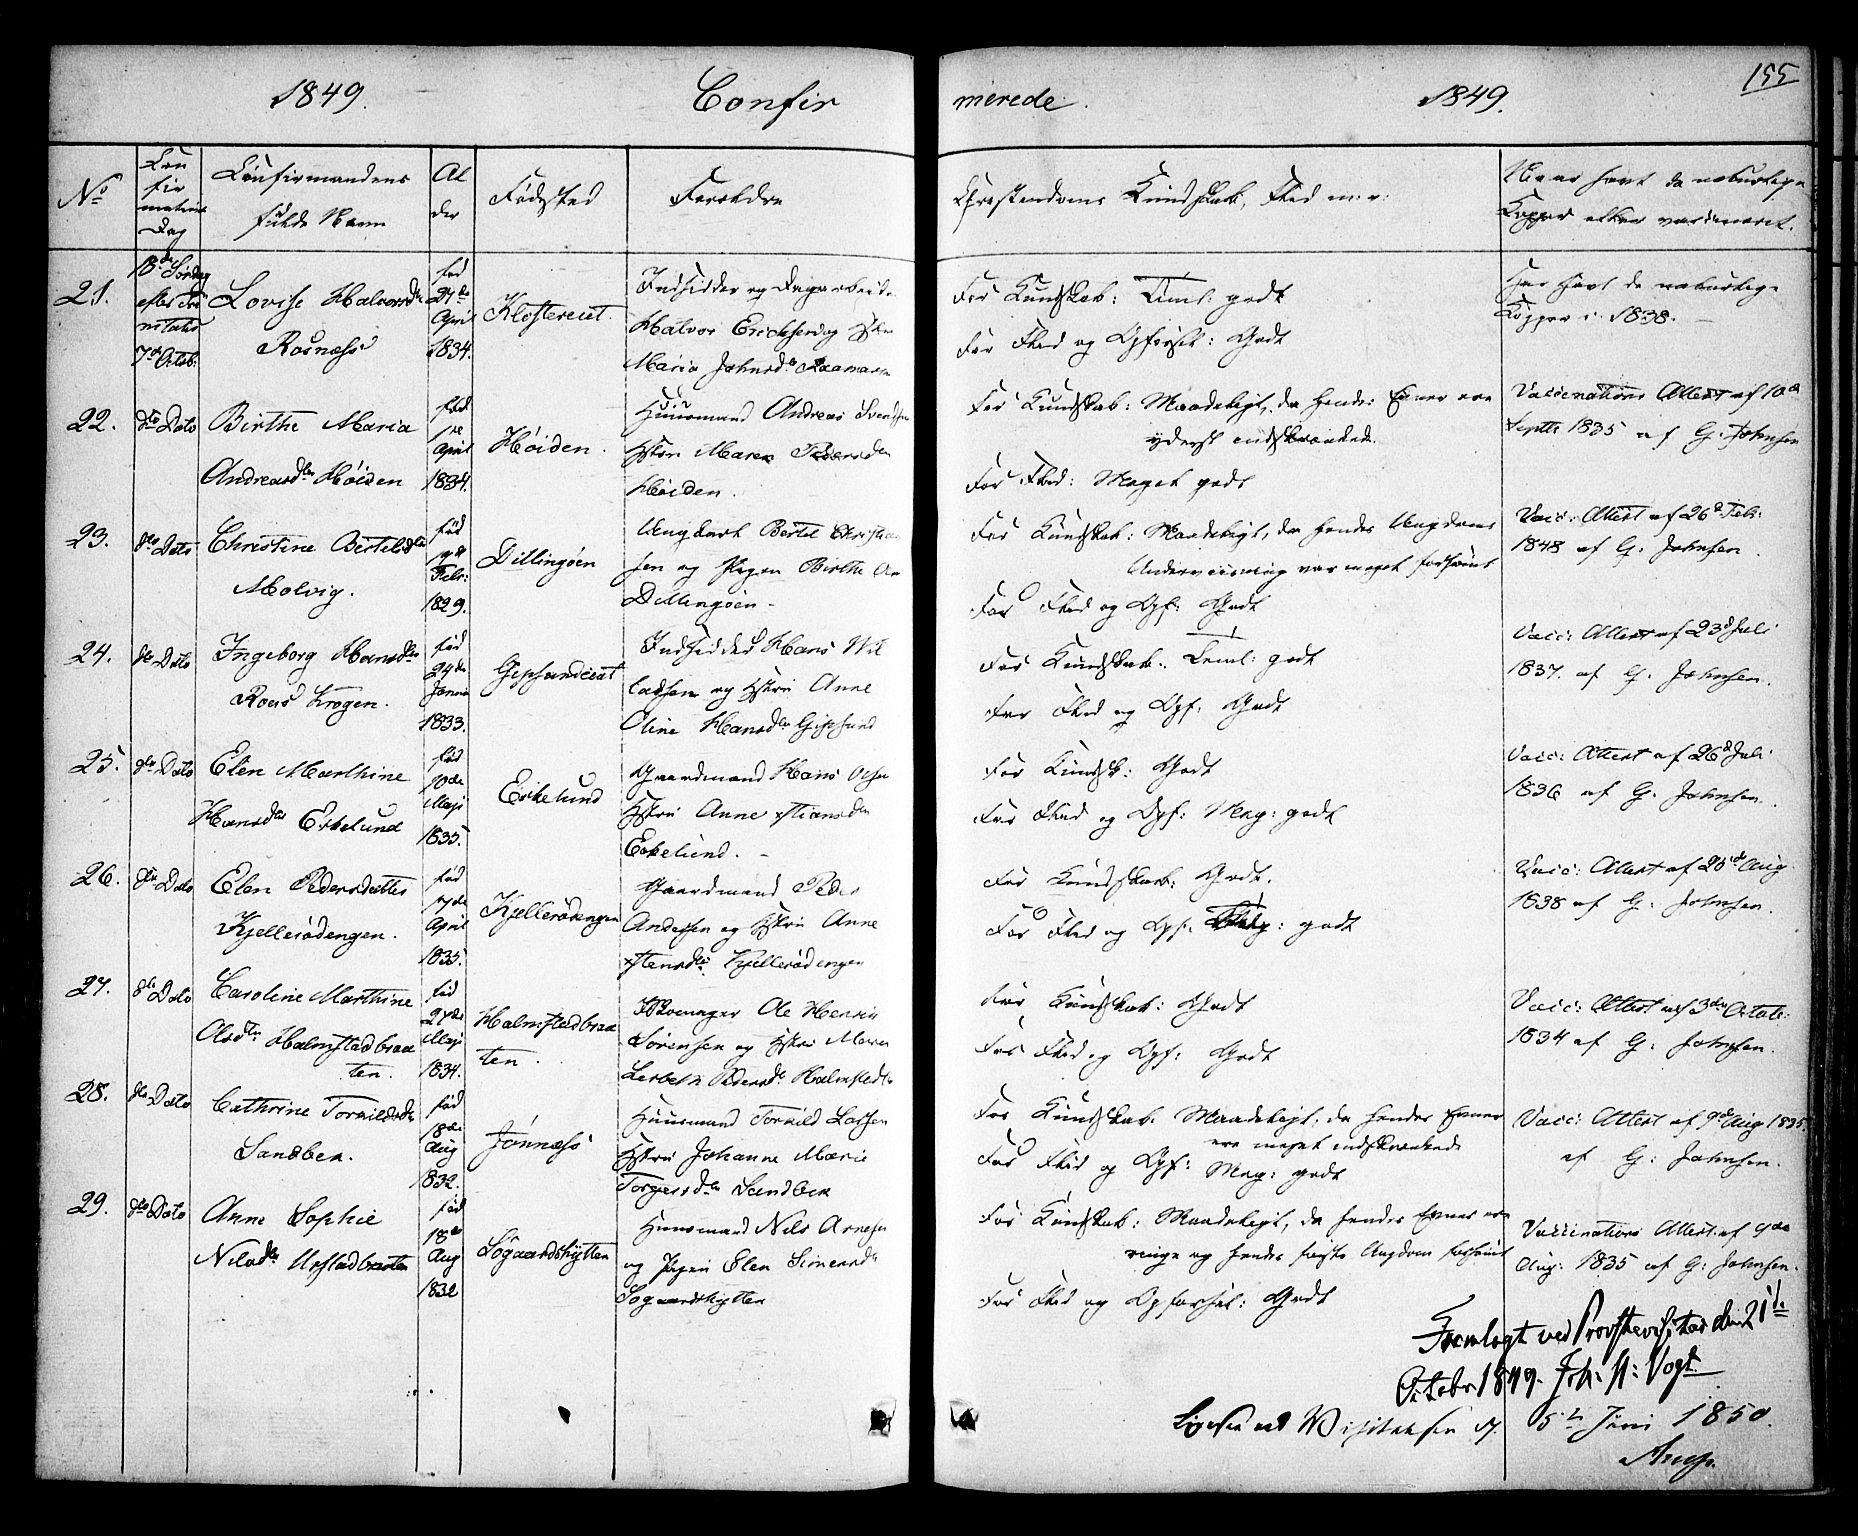 155
1849. Confir merede. 1849.
No
Con
fir
mations
Dag
Confirmandens
fulde Navn
Al
der
Fødested
Forældre
Christendoms Kundskab, Flid m: v:
Naar havt de naturlige
Kopper eller vaccineret.
21.
18de Søndag
efter Tri
nitatis
7de Octob:
Lovise Halvorsdtr
Rosnæss
fød
24de
April
1834.
Klostereiet.
Indsidder og Dagarbeider
Halvor Erichsen og Hstru
Maria Johnsdtr
For Kundskab: Teml: godt
For Flid og Opførsel: Godt
Har havt de naturlige
Kopper i 1838.
22.
dto Dato
Birthe Maria
Andreasdtr Høiden
fød
1de
April
1834.
Høiden.
Huusmand Andreas Svendsen
Hstru Maren Pedersdtr
Høiden.
For Kundskab: Maadeligt, da hendes Evner ere
yderst indskrænkede.
For Flid: Meget godt
Vaccinations Attest af 10de
Septb 1835 af G. Johnsen
23.
dto Dato
Christine Bertelsdtr
Molvig.
fød
Febr:
1829.
Dillingøen
Ungkarl Bertel Christian
sen og Pigen Birthe An
Dillingøen
For Kundskab: Maadeligt, da hendes Ungdoms
Underviisning var meget forsømt
For Flid og Opf: Godt
Vacc: Attest af 26de Feb:
1848 af G. Johnsen.
24.
dto Dato
Ingeborg Hansdtr
Roes Krogen.
fød
24de
Janua
1833.
Gipsundeiet
Indsidder Hans Wil
ladsen og Hstru Anne
Oline Hansdtr Gipsund
For Kundskab: Teml: godt
For Flid og Opf: Godt
Vacc: Attest af 23de Juli
1837. af G. Johnsen.
25.
dto Dato
Elen Marthine
Hansdtr Eskelund
fød
10de
Maji
1835.
Eskelund
Gaardmand Hans Olsen
Hstru Anne Xstiansdtr
Eskelund.
For Kundsk: Godt
For Flid og Opf: Meg: godt
Vacc: Attest af 26de Juli
1836 af G. Johnsen.
26.
dto Dato
Elen Pedersdatter
Kjellerødengen.
fød
17de
April
1835.
Kjellerødengen
Gaardmand Peder
Andersen og Hstru Anne
Xstensdtr Kjellerødengen
For Kundskab: Godt.
For Flid og Opf: Meg: godt
Vacc: Attest af 25de Aug
1838 af G. Johnsen.
27.
dto Dato
Caroline Marthine
Olsdtr Halmstadbraa
ten.
fød
27de
Maji
1834.
Halmstadbraa
ten.
Ole Henrik
Sørensen og Hstru Maren
Lisbeth Pedersdtr Halmstadbr
For Kundskab: Godt
For Flid og Opf: Godt
Vacc: Attest af 3de Octob:
1834 af G. Johnsen.
28.
dto Dato
Cathrine Torkildsdtr
Sandbek.
fød
18de
Aug
1832.
Jønnæss
Huusmand Torkild Larsen
Hstru Johanne Marie
Torgersdtr Sandbek
For Kundskab. Maadeligt, da hendes Evner
ere meget indskrænkede
For Flid og Opf: Meg: godt
Vacc: Attest af 9de Aug 1835.
af G: Johnsen.
29.
dto Dato
Anne Sophie
Nilsdtr Urstadbraaten
fød
18de
Aug
1832
Søgaardshytten
Huusmand Nils Arnesen
og Pigen Elen Simensdtr
Søgaardshytten
For Kundskab: Maadeligt, da hendes Evner ere
ringe og hendes første Ungdom forsømt
For Flid og Opførsel: Godt
Vaccinations Attest af 9de
Aug: 1835 af G: Johnsen.
Fremlagt ved Provstevisitas den 21de
October 1849. Joh. H: Vogt
Ligesaa ved Visitatsen d. 5te Juni 1850.
Arup.